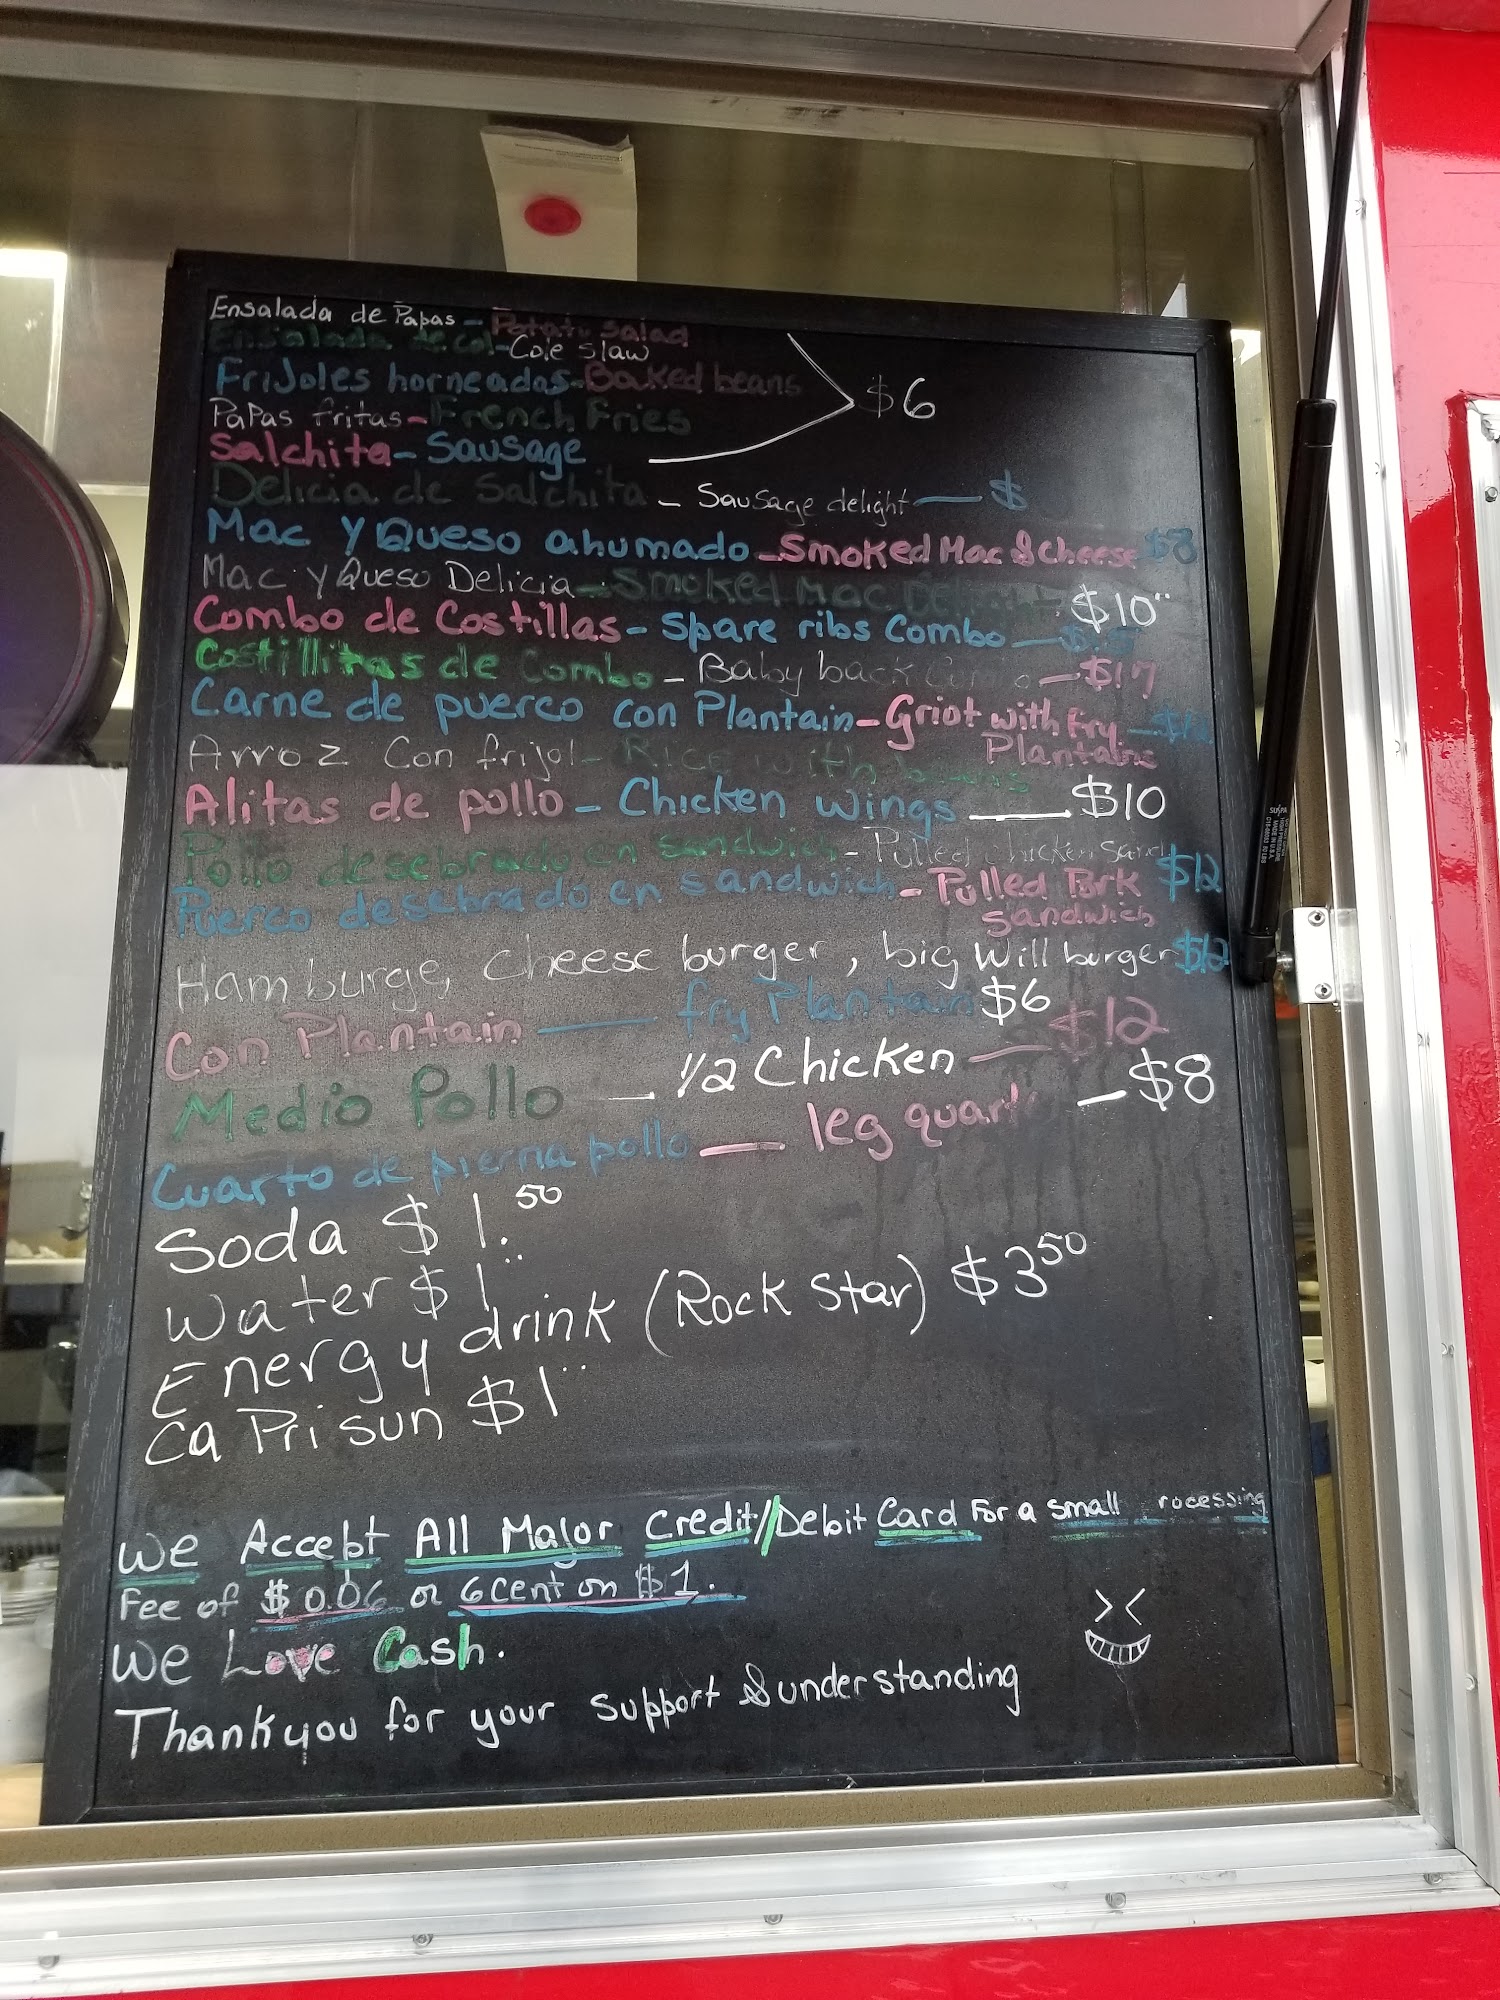 Ensalada de Papas - Potato Salad
Ensalada de Col - Cole slaw
FriJoles horneados - Baked beans $6
PaPas fritas - French Fries
Salchita - Sausage
Delicia de Salchita - Sausage delight — $
Mac y Queso ahumado - Smoked Mac & cheese $8
Mac y Queso Delicia - Smoked Mac $10
Combo de Costillas - Spare ribs Combo —
Costillitas de Combo - Baby back — $17
Carne de puerco con Plantain - Griot with fry
Plantains
Arroz Con frijol - Rice with beans
Alitas de pollo - Chicken wings — $10
Pollo desebrado en sandwich - Pulled chicken sand
Puerco desebrado en sandwich - Pulled Pork $12
sandwich
Hamburge, cheese burger, big Will burger $12
Con Plantain — fry Plantain $6
Medio Pollo — 1/2 Chicken — $12
Cuarto de pierna pollo — leg quart — $8
Soda $1.50
Water $1
Energy drink (Rock Star) $3 50
CaPrisun $1
We Accept All Major Credit/Debit Card For a small rocessing
Fee of $0.06 or 6 cent on $1.
We Love Cash.
Thank you for your support & understanding